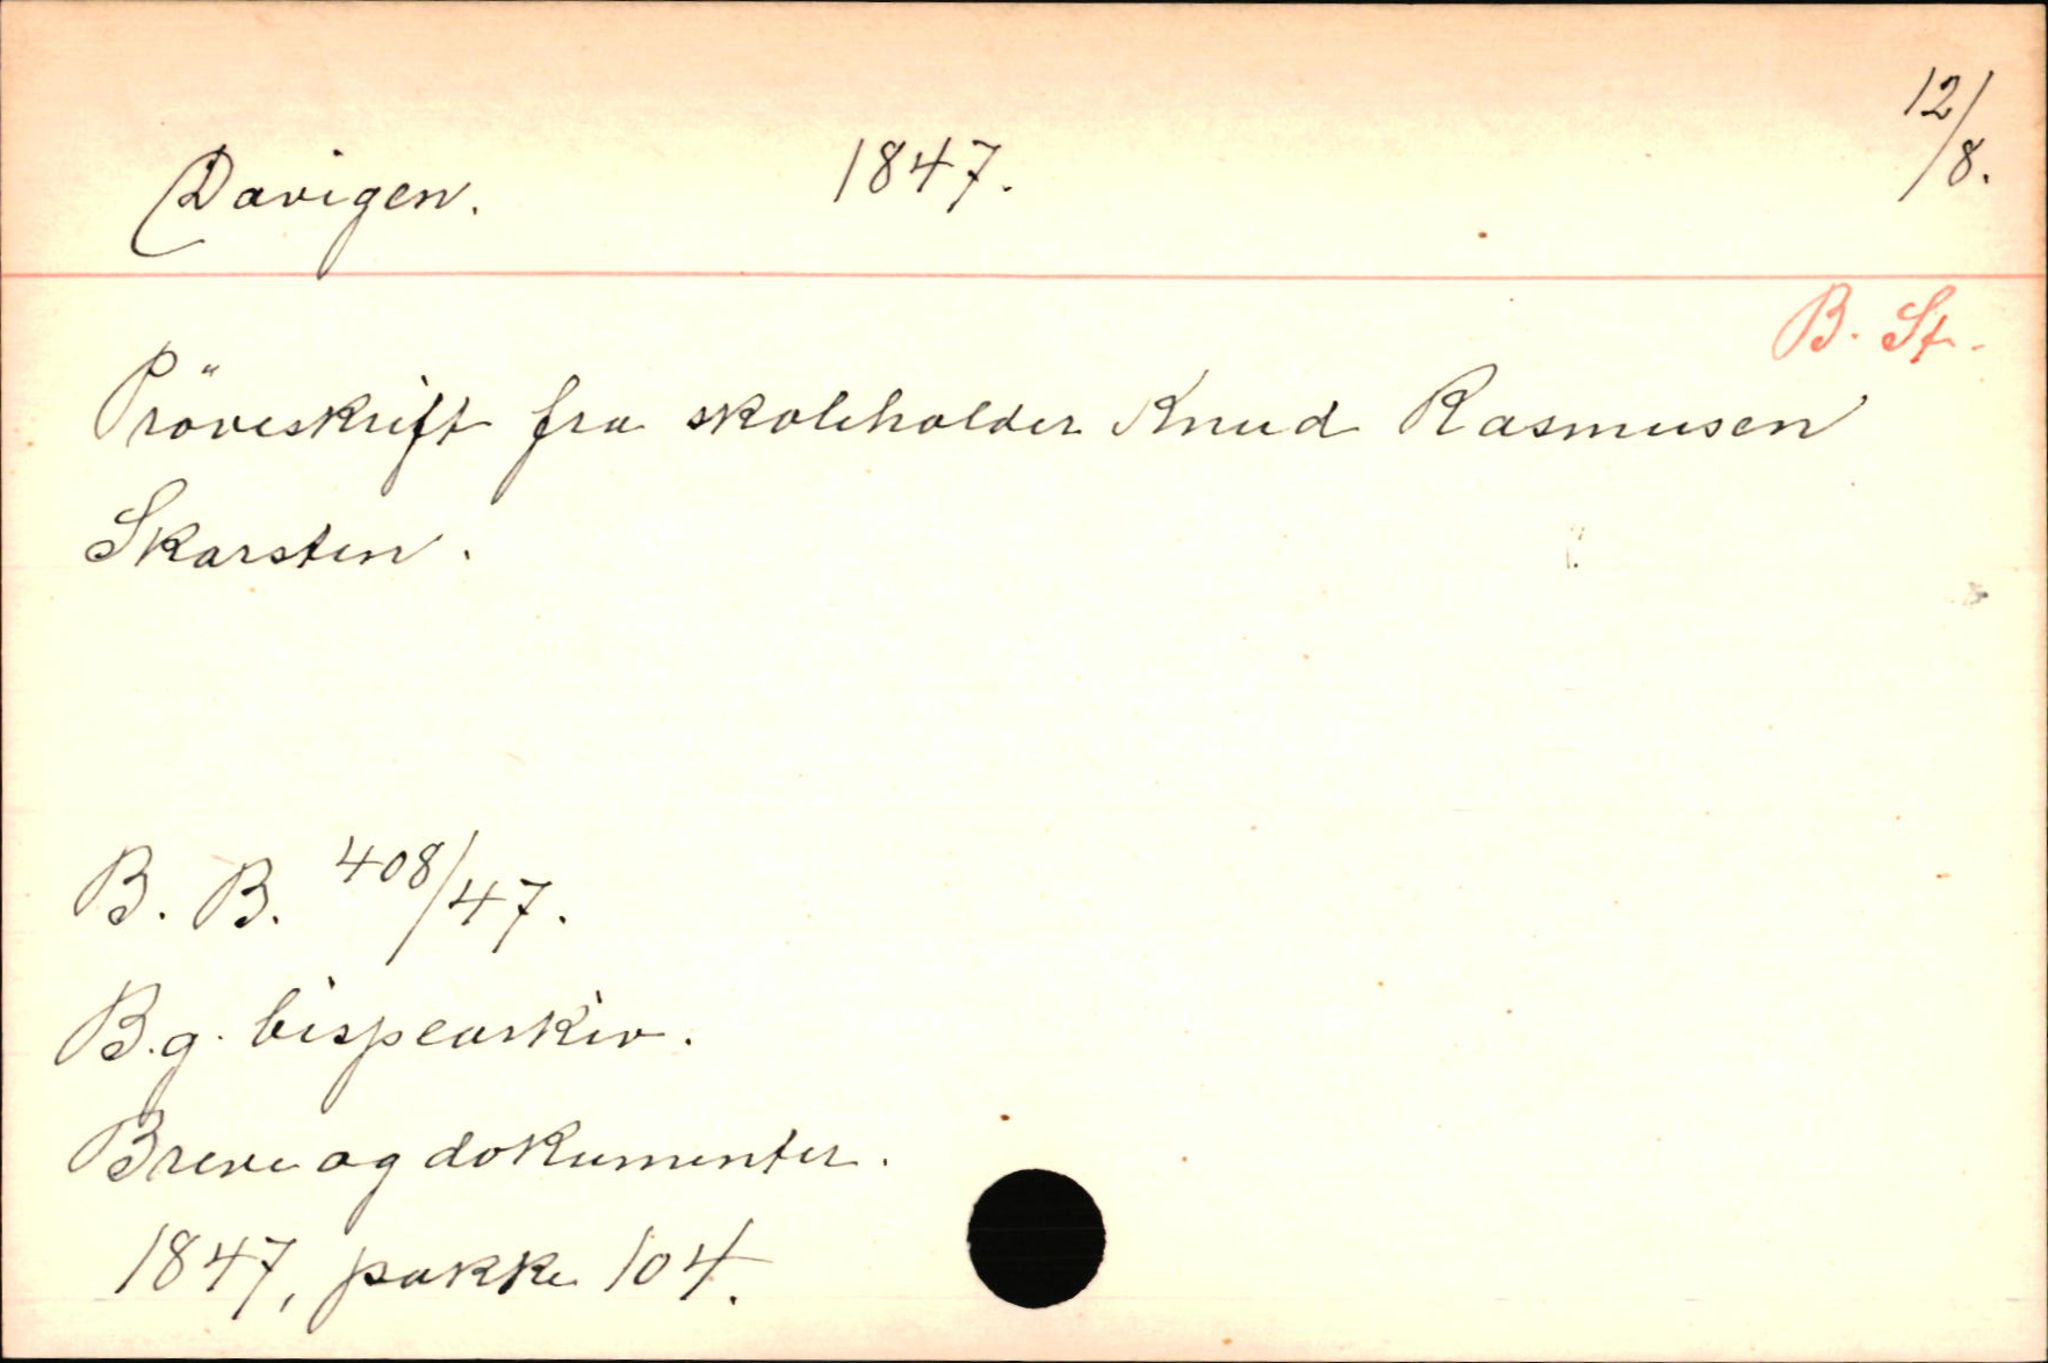 Davigen. 1847. 12/8.
B. St.
Pröveskrift fra skoleholder Knud Rasmusen
Skarsten.
B. B. 408/47.
B.g. bispearkiv.
Breve og dokumenter.
1847, pakke 104.